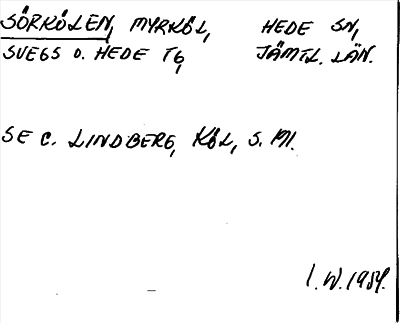 SÖRKÖLEN, MYRKÖL, HEDE SN,
SVEGS O. HEDE TG, JÄMTL. LÄN.
SE C. LINDBERG, KÖL, S. 191.
I. W. 1954.